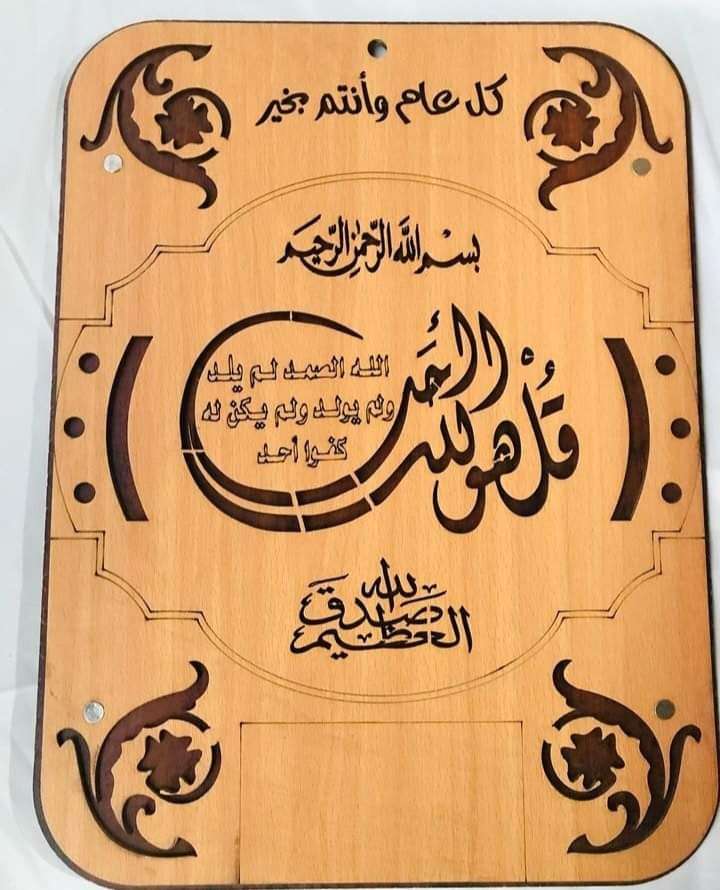 كل عام وأنتم بخير
بسم الله الرحمن الرحيم
قل هو الله أحد
الله الصمد لم يلد
ولم يولد ولم يكن له
كفوا أحد
صدق الله العظيم